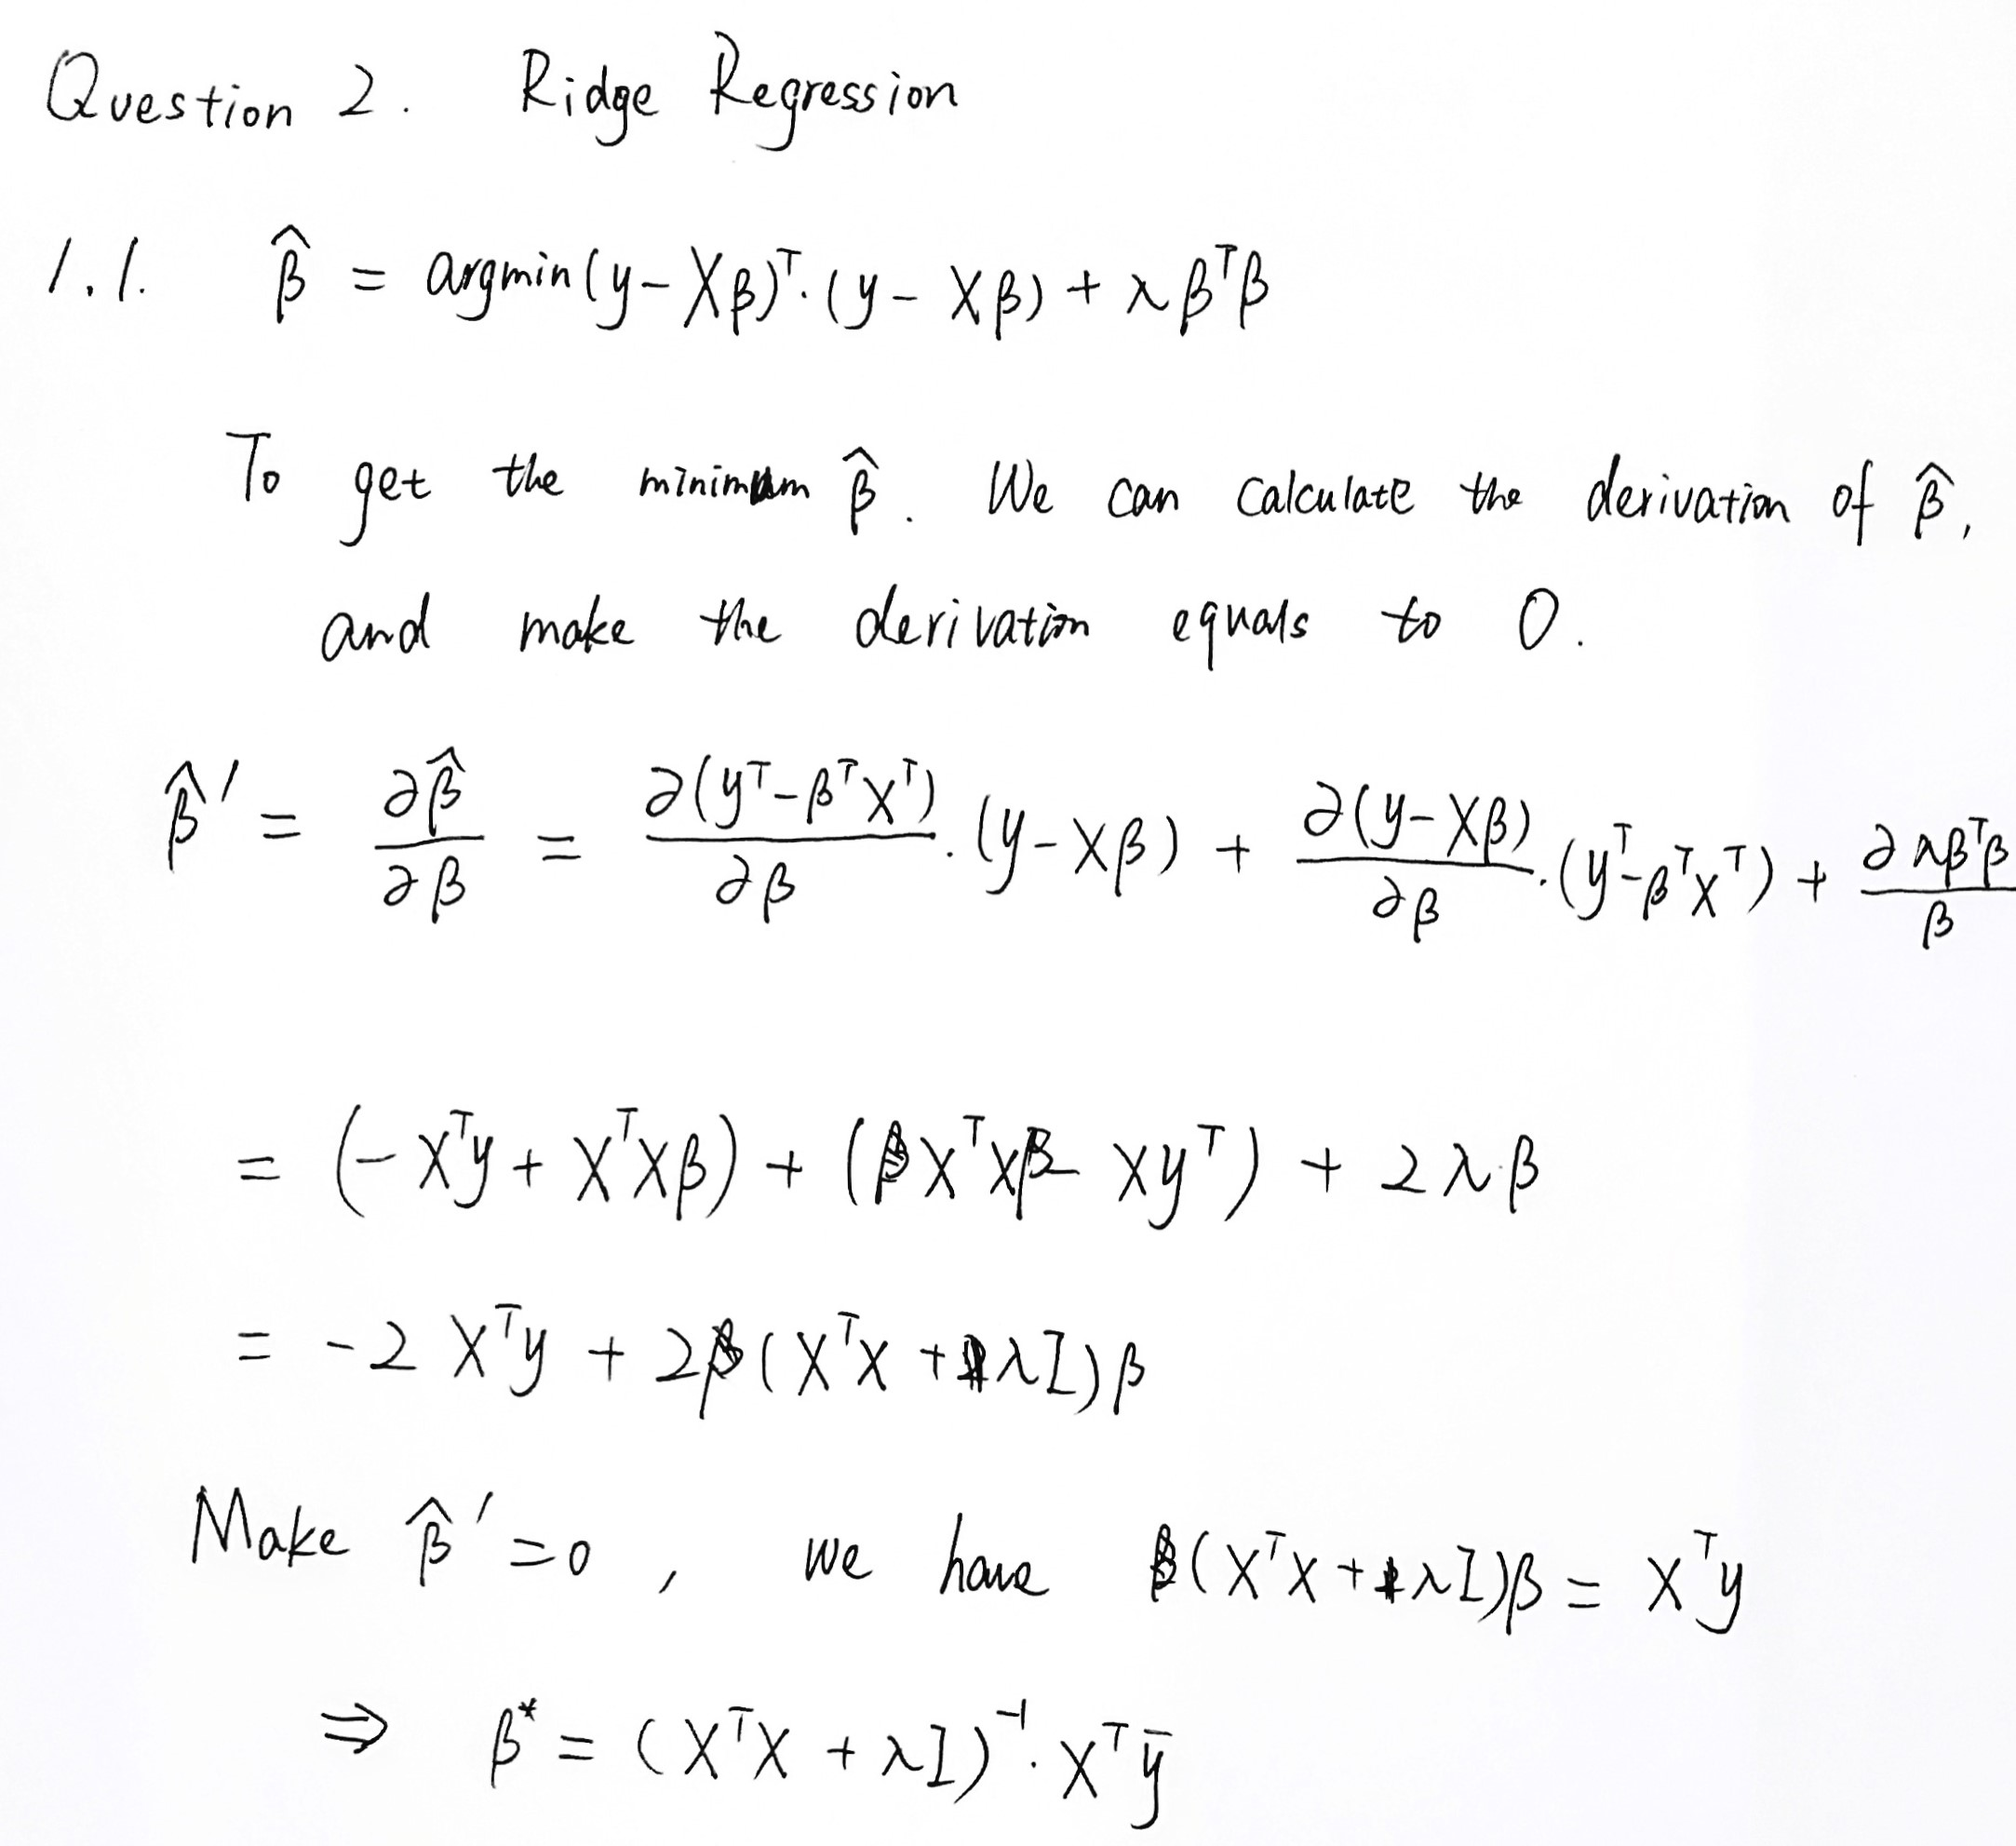 Question 2. Ridge Regression
1.1. β̂ = argmin(y-Xβ)ᵀ·(y-Xβ)+λβᵀβ
To get the minimum β̂. We can calculate the derivation of β̂,
and make the derivation equals to 0.
β̂' = ∂β̂/∂β = ∂(yᵀ-βᵀXᵀ)/∂β·(y-Xβ) + ∂(y-Xβ)/∂β·(yᵀ-βᵀXᵀ) + ∂λβᵀβ/β
= (-Xᵀy + XᵀXβ) + (XᵀXβ - Xyᵀ) + 2λβ
= -2Xᵀy + 2(XᵀX + λI)β
Make β̂'=0, we have (XᵀX + λI)β = Xᵀy
⇒ β* = (XᵀX + λI)⁻¹·Xᵀȳ